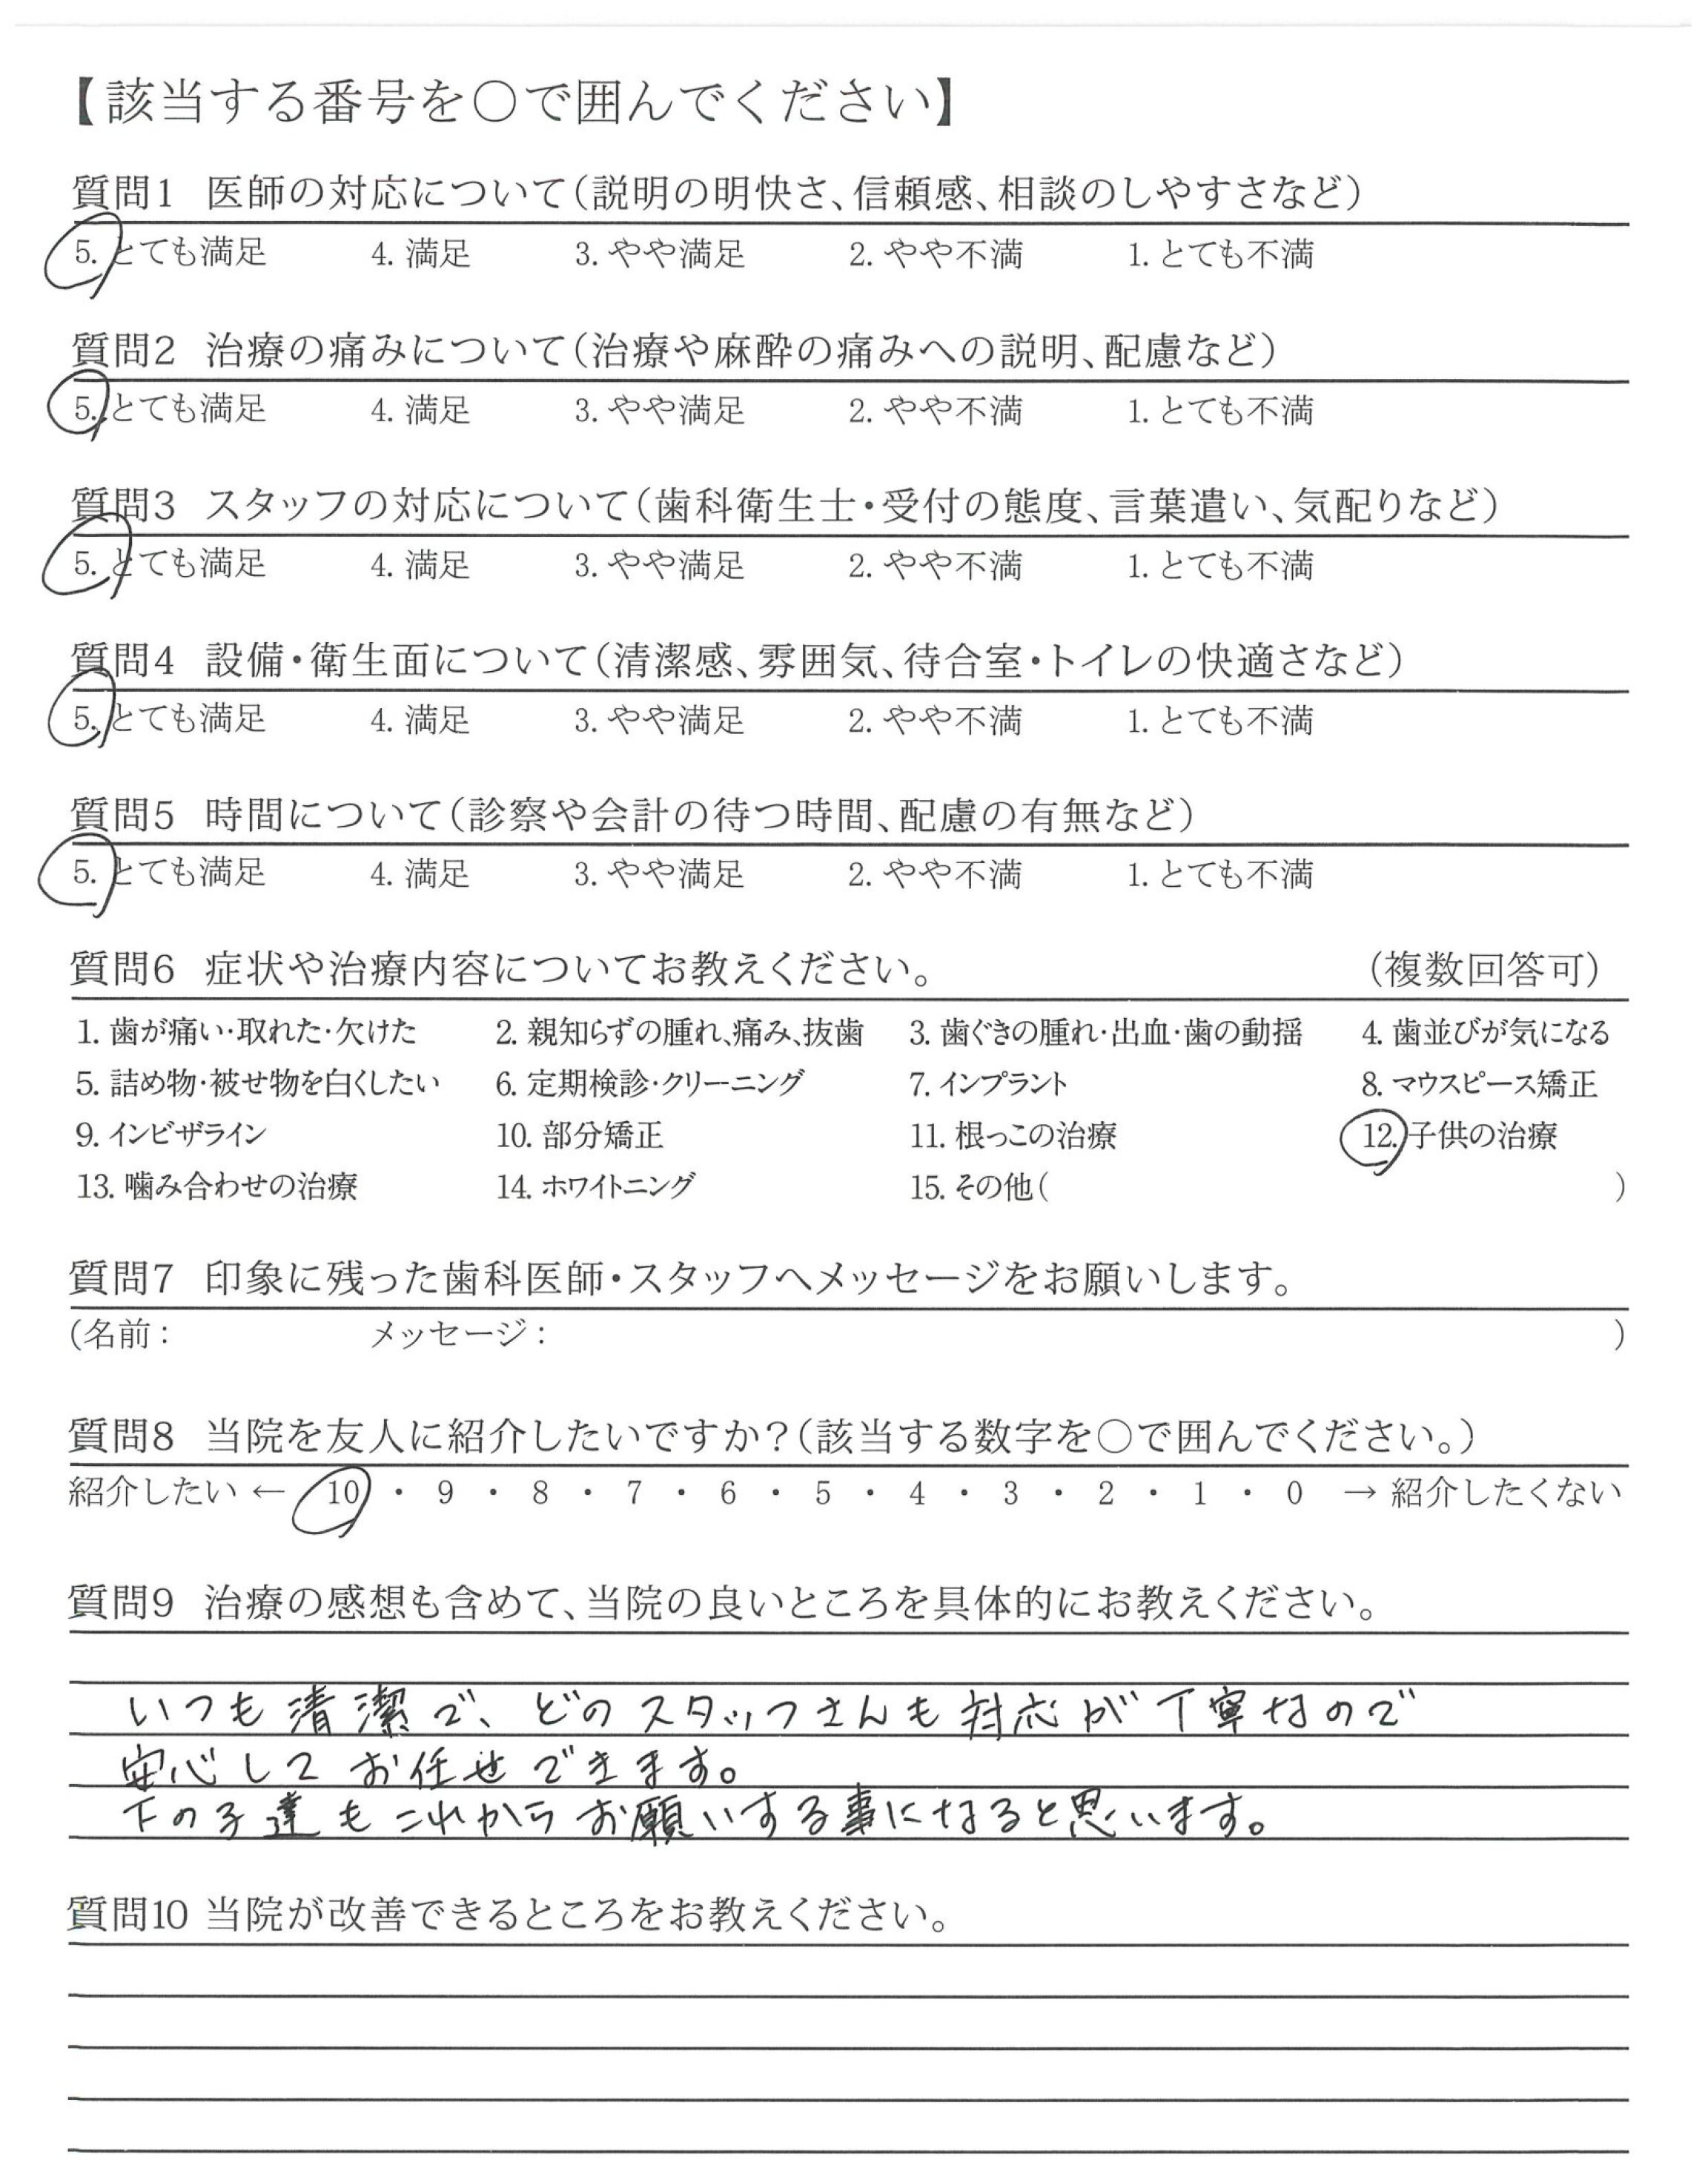 【該当する番号を○で囲んでください】
質問1 医師の対応について（説明の明快さ、信頼感、相談のしやすさなど）
5. とても満足 4. 満足 3. やや満足 2. やや不満 1. とても不満
質問2 治療の痛みについて（治療や麻酔の痛みへの説明、配慮など）
5. とても満足 4. 満足 3. やや満足 2. やや不満 1. とても不満
質問3 スタッフの対応について（歯科衛生士・受付の態度、言葉遣い、気配りなど）
5. とても満足 4. 満足 3. やや満足 2. やや不満 1. とても不満
質問4 設備・衛生面について（清潔感、雰囲気、待合室・トイレの快適さなど）
5. とても満足 4. 満足 3. やや満足 2. やや不満 1. とても不満
質問5 時間について（診察や会計の待つ時間、配慮の有無など）
5. とても満足 4. 満足 3. やや満足 2. やや不満 1. とても不満
質問6 症状や治療内容についてお教えください。 （複数回答可）
1. 歯が痛い・取れた・欠けた 2. 親知らずの腫れ、痛み、抜歯 3. 歯ぐきの腫れ・出血・歯の動揺 4. 歯並びが気になる
5. 詰め物・被せ物を白くしたい 6. 定期検診・クリーニング 7. インプラント 8. マウスピース矯正
9. インビザライン 10. 部分矯正 11. 根っこの治療 12. 子供の治療
13. 噛み合わせの治療 14. ホワイトニング 15. その他（ ）
質問7 印象に残った歯科医師・スタッフへメッセージをお願いします。
（名前： メッセージ： ）
質問8 当院を友人に紹介したいですか？（該当する数字を○で囲んでください。）
紹介したい ← 10 ・ 9 ・ 8 ・ 7 ・ 6 ・ 5 ・ 4 ・ 3 ・ 2 ・ 1 ・ 0 → 紹介したくない
質問9 治療の感想も含めて、当院の良いところを具体的にお教えください。
いつも清潔で、どのスタッフさんも対応が丁寧なので
安心してお任せできます。
下の子達もこれからお願いする事になると思います。
質問10 当院が改善できるところをお教えください。